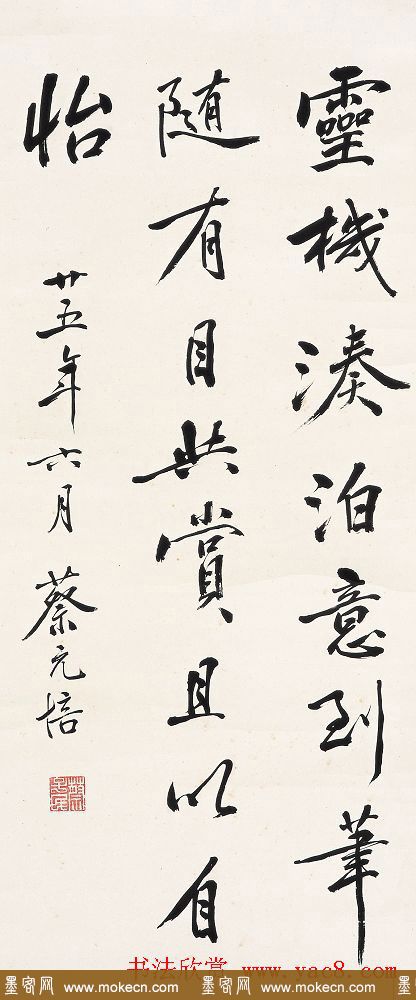 靈機湊泊意到筆
隨有目共賞且以自
怡
廿五年六月 蔡元培
书法欣赏 www.yac8.com
墨客网 www.mokecn.com 墨客网 www.mokecn.com